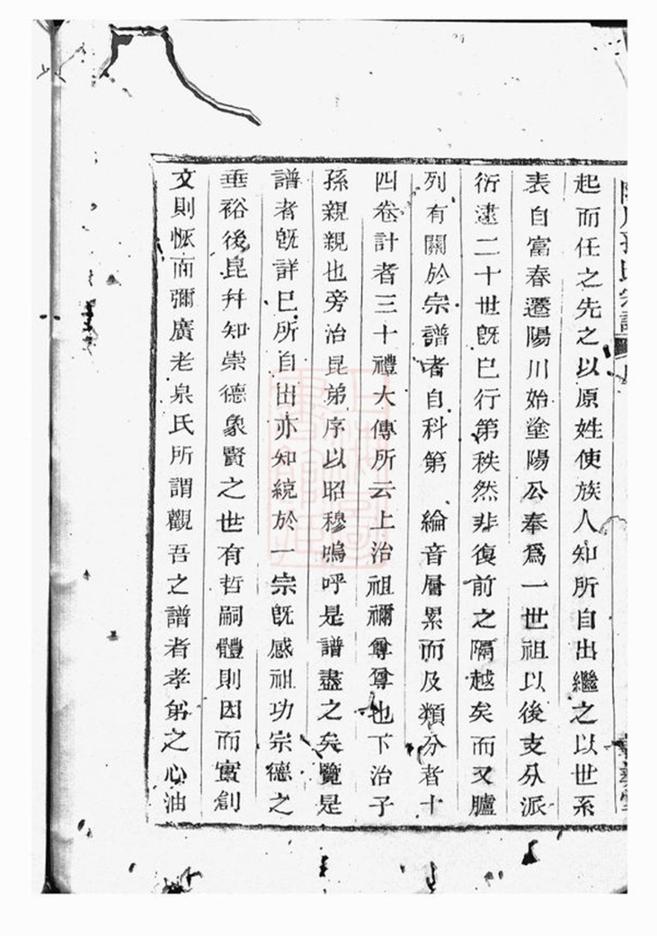 陽川孫氏宗譜
起而任之先之以原姓使族人知所自出繼之以世系
表自富春遷陽川始塗陽公奉爲一世祖以後支分派
衍逮二十世旣已行第秩然非復前之隔越矣而又臚
列有關於宗譜者自科第 綸音層累而及類分者十
四卷計者三十禮大傳所云上治祖禰尊尊也下治子
孫親親也旁治昆弟序以昭穆嗚呼是譜盡之矣覽是
譜者旣詳已所自出亦知統於一宗旣感祖功宗德之
垂裕後昆幷知崇德象賢之世有哲嗣體則因而實創
文則恢而彌廣老泉氏所謂觀吾之譜者孝弟之心油